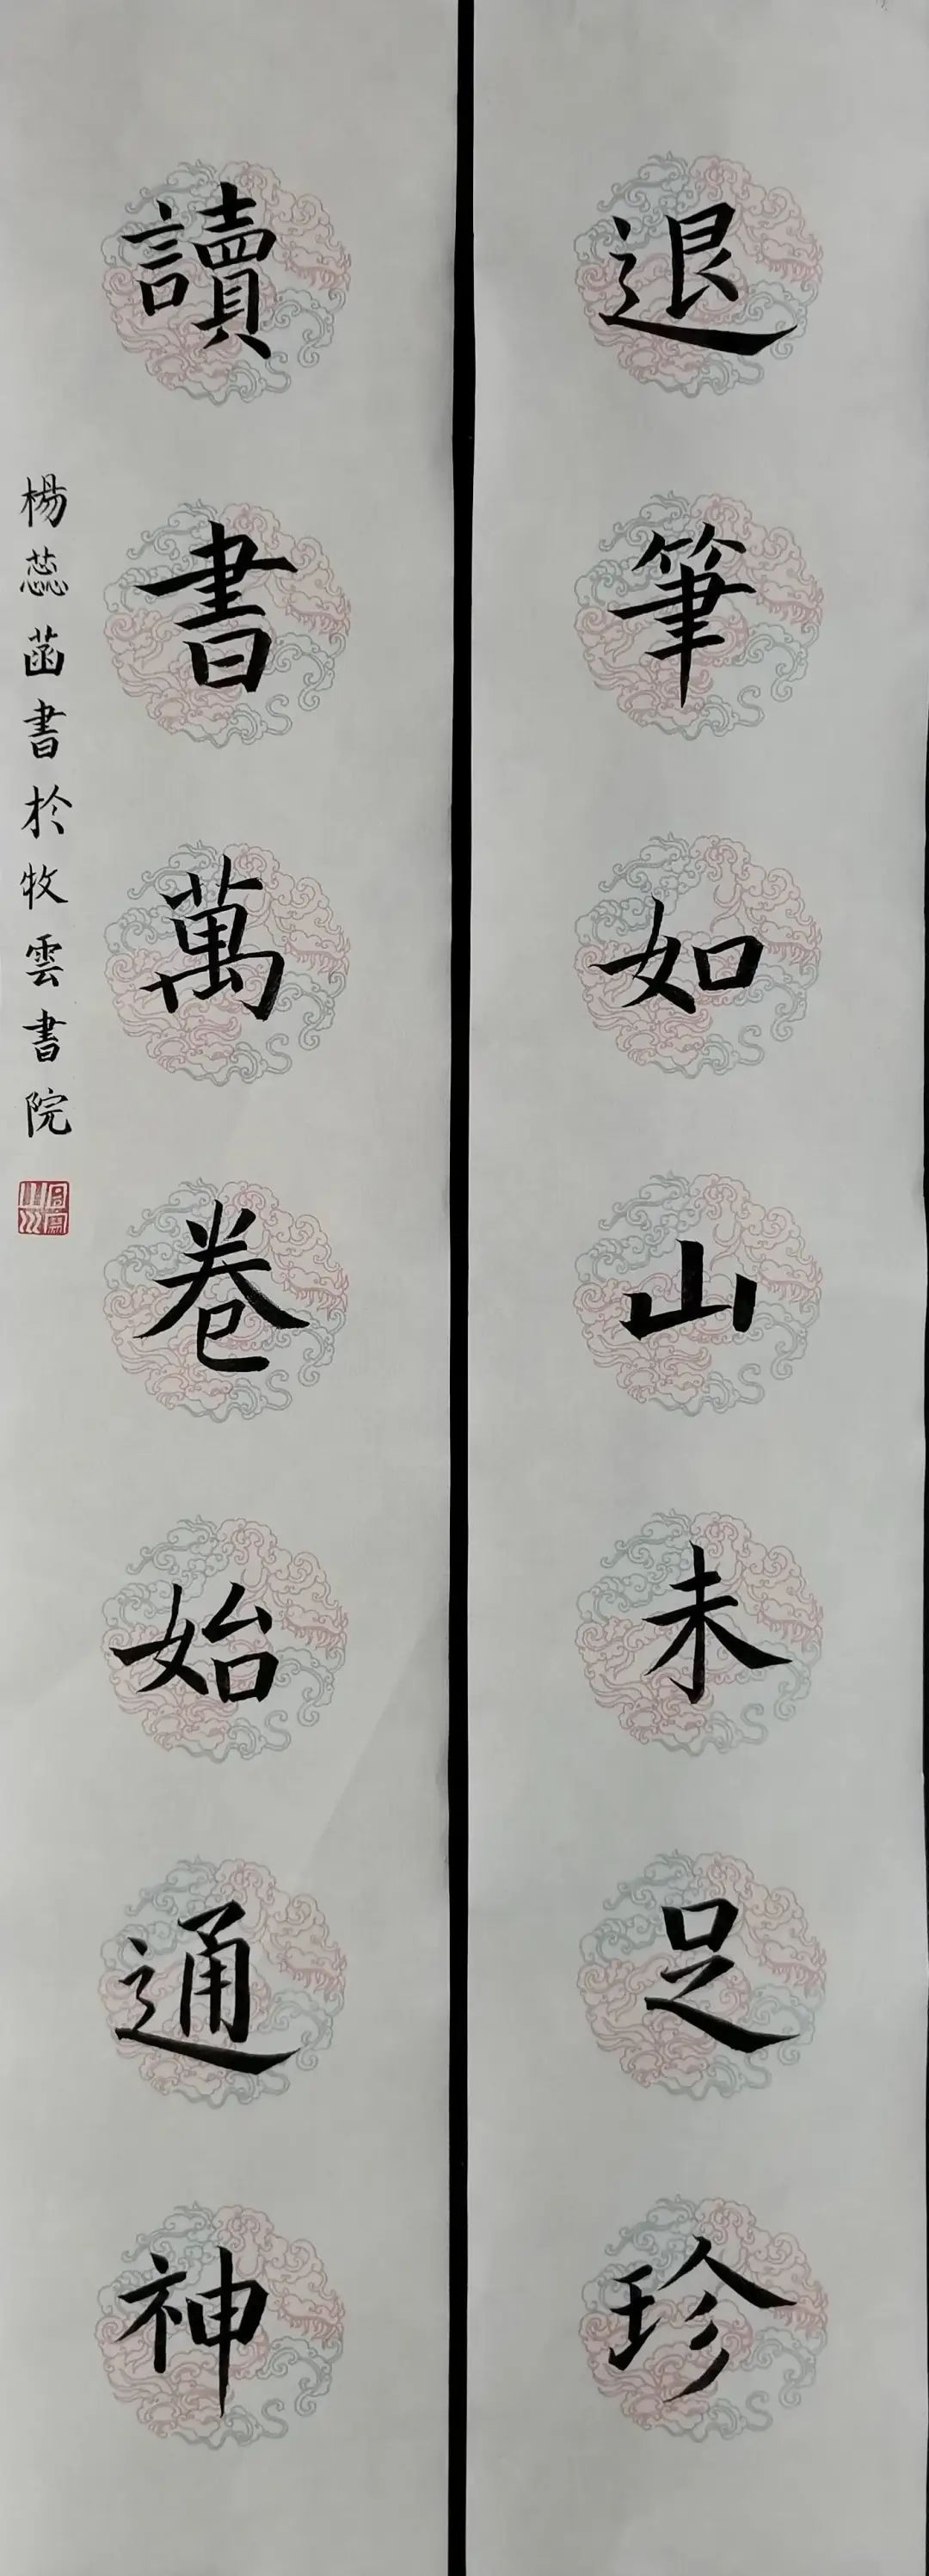 退筆如山未足珍
讀書萬卷始通神
楊蕊菡書於牧雲書院